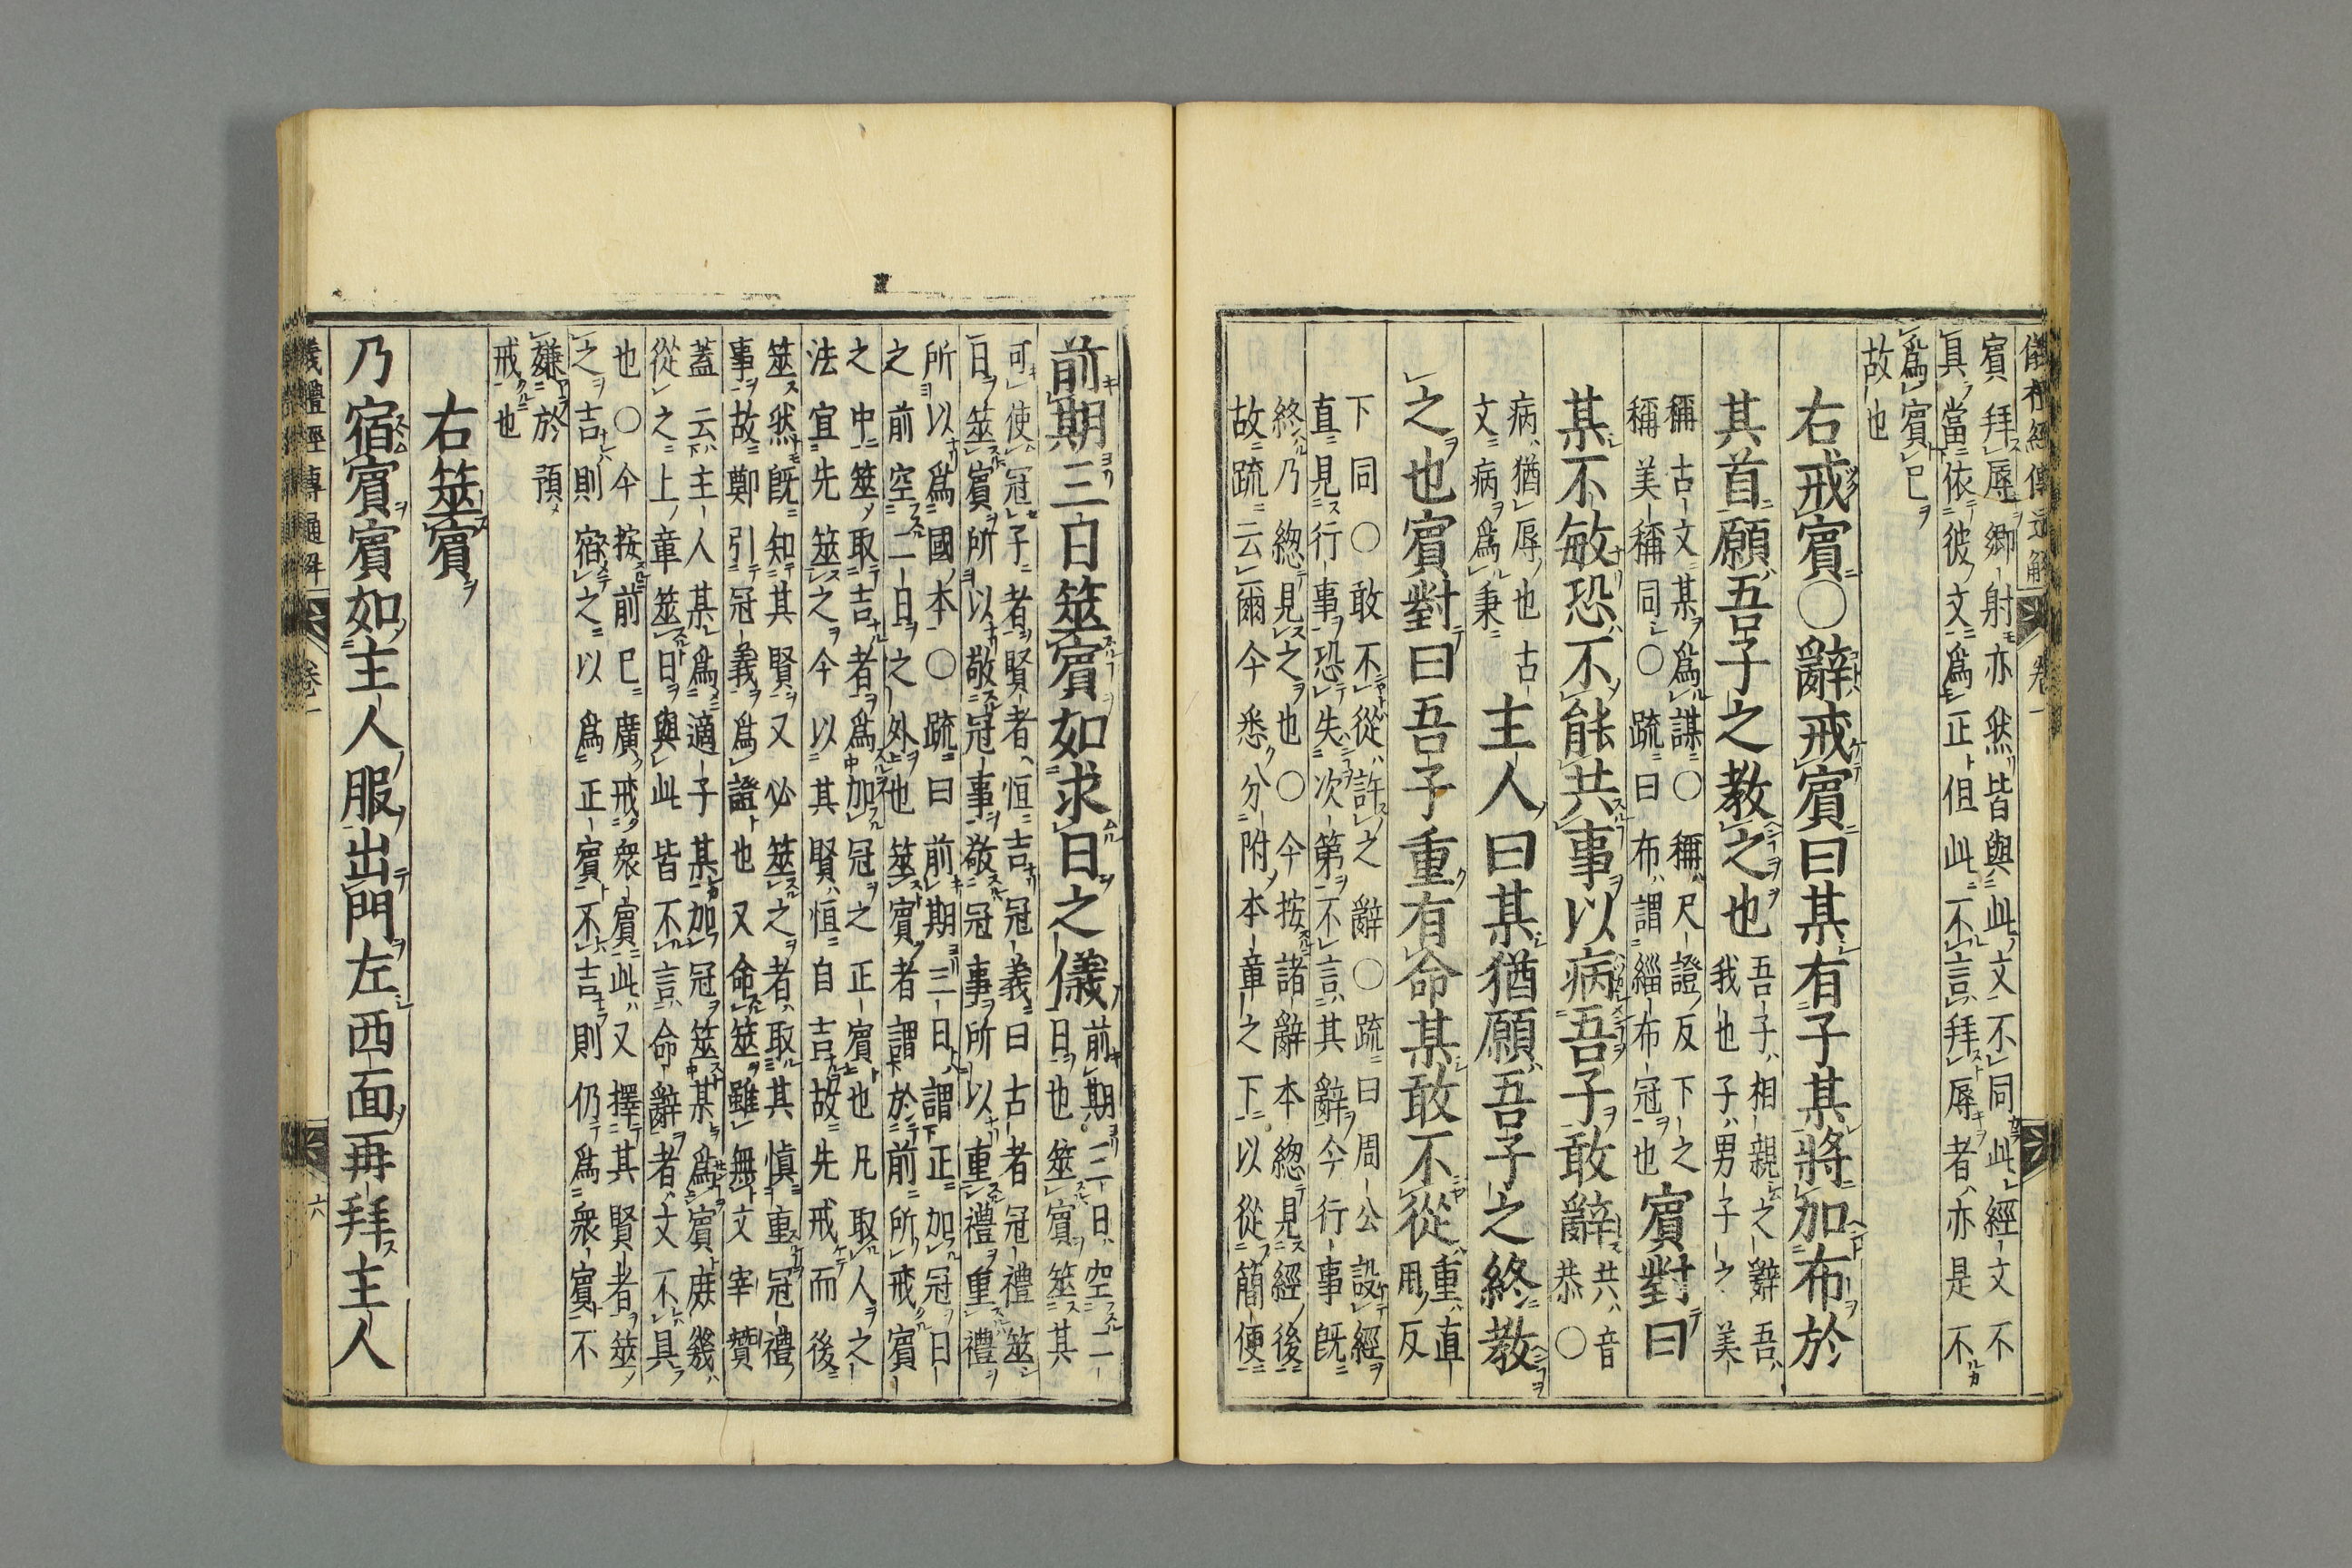 儀禮經傳通解 卷一
賓拜辱鄉射亦然皆與此文不同此經文不
具當依彼文爲正但此不言拜辱者亦是不
爲賓巳
故也
右戒賓〇辭戒賓曰某有子某將加布於
其首願吾子之教之也
吾子相親之辭吾
我也子男子之美
稱古文某爲謀〇稱尺證反下之
稱美稱同〇疏曰布謂緇布冠也
賓對曰
某不敏恐不能共事以病吾子敢辭
共音
恭〇
病猶辱也古
文病爲秉
主人曰某猶願吾子之終教
之也賓對曰吾子重有命某敢不從
重直
用反
下同〇敢不從許之辭〇疏曰周公設經
直見行事恐失次第不言其辭今行事旣
終乃緫見之也〇今按諸辭本緫見經後
故疏云爾今悉分附本章之下以從簡便
前期三日筮賓如求日之儀
前期三日空二
日也筮賓筮其
可使冠子者賢者恒吉冠義曰古者冠禮筮
日筮賓所以敬冠事敬冠事所以重禮重禮
所以爲國本〇疏曰前期三日謂正加冠日
之前空二日之外也筮賓者謂於前所戒賓
之中筮取吉者爲加冠之正賓也凡取人之
法宜先筮之今以其賢恒自吉故先戒而後
筮然旣知其賢又必筮之者取其愼重冠禮
事故鄭引冠義爲證也又命筮雖無文宰贊
蓋云主人某爲適子某加冠筮某爲賓庶幾
從之上章筮日與此皆不言命辭者文不具
也〇今按前巳廣戒衆賓此又擇其賢者筮
之吉則宿之以爲正賓不吉則仍爲衆賓不
嫌於預
戒也
右筮賓
乃宿賓賓如主人服出門左西面再拜主人
儀禮經傳通解 卷一 六